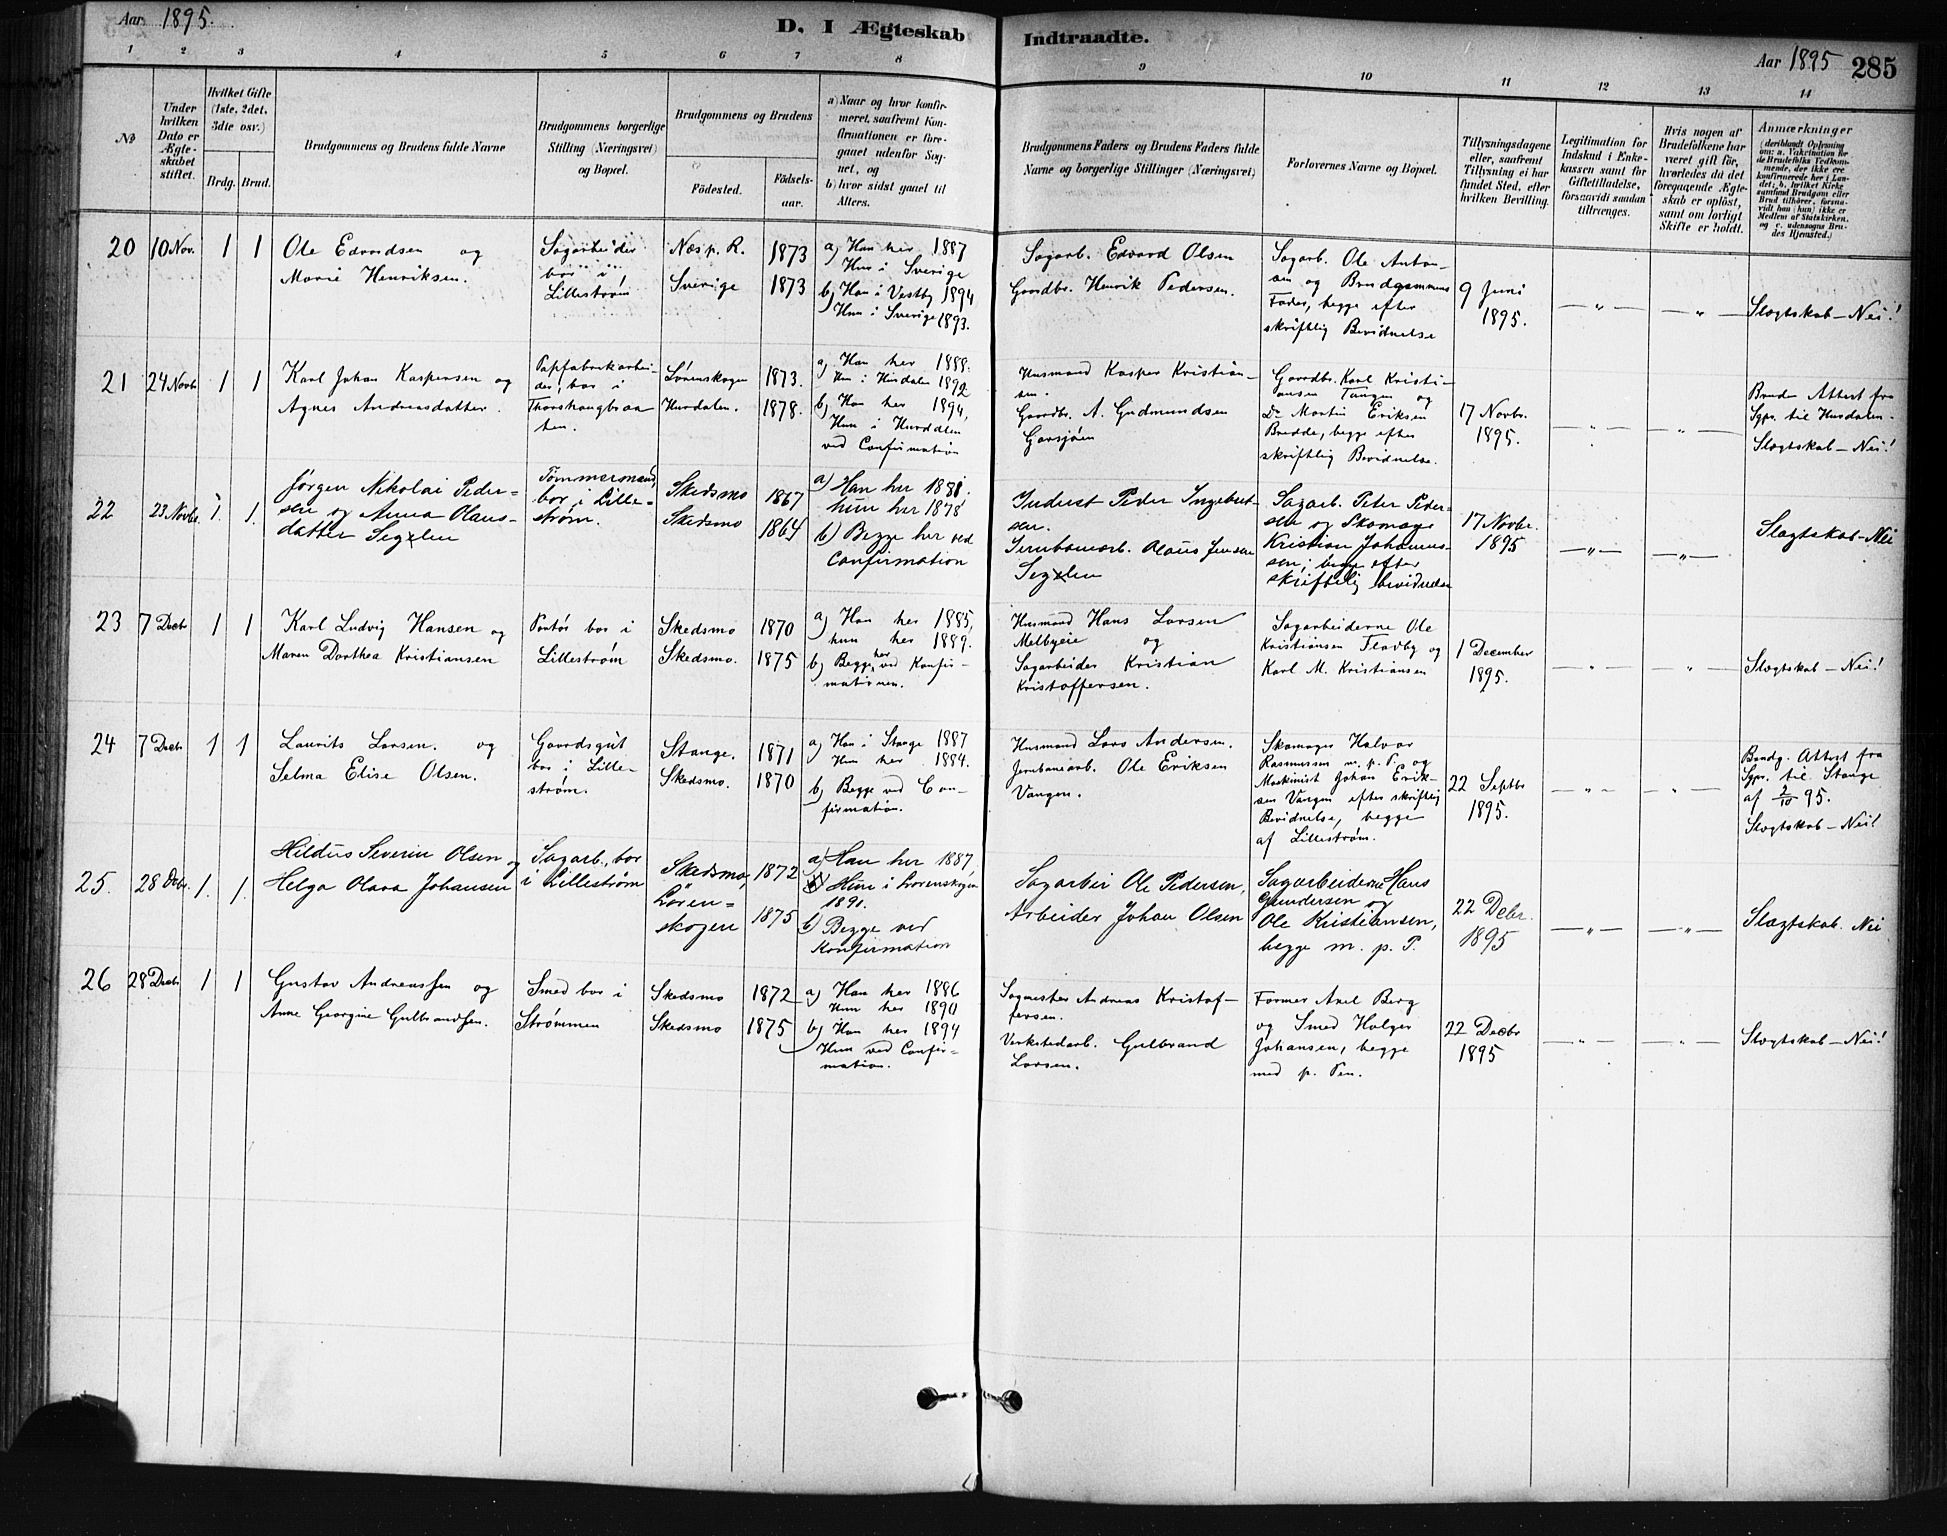 Aar 1895.
D. I Ægteskab Indtraadte.
Aar 1895 285
1 2 3 4 5 6 7 8 9 10 11 12 13 14
No
Under hvilken Dato er Ægteskabet stiftet.
Hvilket Gifte (1ste, 2det, 3die osv.)
Brdg. Brud.
Brudgommens og Brudens fulde Navne
Brudgommens borgerlige Stilling (Næringsvei) og Bopæl.
Brudgommens og Brudens
Fødested.
Fødselsaar.
a) Naar og hvor konfirmeret, saafremt Konfirmationen er foregaaet udenfor Sognet, og
b) hvor sidst gaaet til Alters.
Brudgommens Faders og Brudens Faders fulde Navne og borgerlige Stillinger (Næringsvei)
Forlovernes Navne og Bopæl.
Tillysningsdagene eller, saafremt Tillysning ei har fundet Sted, efter hvilken Bevilling.
Legitimation for Indskud i Enkekassen samt for Giftetilladelse, forsaavidt saadan tiltrænges.
Hvis nogen af Brudefolkene har været gift før, hvorledes da det foregaaende Ægteskab er opløst, samt om lovligt Skifte er holdt.
Anmærkninger (deriblandt Oplysning om: a. Vakcination for de Brudefolks Vedkommende, der ikke ere konfirmerede her i Landet; b. hvilket Kirkesamfund Brudgom eller Brud tilhører, forsaavidt han (hun) ikke er Medlem af Statskirken, og c. udensogns Brudes Hjemsted.)
20 10 Nov. 1 1
Ole Edvardsen og
Marie Henriksen.
Sagarbeider
bor i
Lillestrøm
Næs p. R. 1873
Sverige 1873
a) Han her 1887
Hun i Sverige
b) Han i Vestby 1894
Hun i Sverige 1893.
Sagarb. Edvard Olsen
Gaardbr. Henrik Pedersen.
Sagarb. Ole Anton-
sen og Brudgommens
Fader, begge efter
skriftlig Bevidnelse
9 Juni
1895.
Slægtskab – Nei!
21 24 Novbr 1 1
Karl Johan Kaspersen og
Agnes Andreasdatter.
Papfabrikarbei-
der, bor i
Thorshaugbraa
ten.
Lørenskogen 1873.
Hurdalen. 1878.
a) Han her 1888.
Hun i Hurdalen 1892
b) Han her 1894,
Hun i Hurdalen
ved Confirmation
Husmand Kasper Kristian-
sen.
Gaardbr. A. Gudmundsen
Garsjøen
Gaardbr. Karl Kristi-
ansen Tangen og
Do Martin Eriksen
Bredde, begge efter
skriftlig Bevidnelse.
17 Novbr.
1895.
Brudens Attest fra
Spr. til Hurdalen.
Slægtskab – Nei!
22 23 Novbr. 1. 1.
Jørgen Nikolai Peder-
sen og Anna Olaus-
datter Segelen
Tømmermand,
bor i Lille-
strøm.
Skedsmo 1867
Skedsmo 1864
a) Han her 1881.
hun her 1878
b) Begge her ved
Confirmation
Inderst Peder Ingebret-
sen.
Jernbanearb. Olaus Jensen
Segelen
Sagarb. Peter Peder-
sen og Skomager
Kristian Johannes-
sen, begge efter
skriftelig bevidnelse
17 Novbr.
1895
Slægtskab – Nei
23 7 Decbr 1 1
Karl Ludvig Hansen og
Maren Dorthea Kristiansen
bor i
Lillestrøm
Skedsmo 1870
Skedsmo. 1875
a) Han her 1885,
hun her 1889.
b) Begge her ved Konfir-
mationen.
Husmand Hans Larsen
Melbyeie og
Sagarbeider Kristian
Kristoffersen.
Sagarbeiderne Ole
Kristiansen Fladby og
Karl M. Kristiansen
1 December
1895.
Slægtskab – Nei!
24 7 Decbr 1 1
Laurits Larsen. og
Selma Elise Olsen.
Gaardsgut
bor i Lille-
strøm.
Stange. 1871
Skedsmo. 1870
a) Han i Stange 1887
Hun her 1884.
b) Begge ved Con-
firmation.
Husmand Lars Andersen.
Jernbanearb. Ole Eriksen
Vangen.
Skomager Halvor
Rasmussen m. p. P. og
Maskinist Johan Erik-
sen Vangen efter skriftlig
Bevidnelse, begge
af Lillestrøm.
22 Septbr
1895.
Brudg. Attest fra
Spr. til Stange
af 2/10 95.
Slægtskab – Nei!
25. 28 Debr. 1. 1.
Hildus Severin Olsen og
Helga Olava Johansen
Sagarb., bor
i Lillestrøm
Skedsmo, 1872
Løren-
skogen 1875
a) Han her 1887,
Hun i Lørenskogen
1891.
b) Begge ved
Konfirmation
Sagarbei Ole Pedersen,
Arbeider Johan Olsen
Sagarbeiderne Hans
Gundersen og
Ole Kristiansen,
begge m. p. P.
22 Debr.
1895
Slægtskab. Nei
26 28 Decbr 1 1
Gustav Andreassen og
Anne Georgine Gulbrandsen.
Smed bor i
Strømmen
Skedsmo 1872
Skedsmo 1875
a) Han her 1886
Hun her 1890
b) Han her 1894
Hun ved Confir-
mation.
Sagmester Andreas Kristof-
fersen.
Verkstedarb. Gulbrand
Larsen.
Former Axel Berg
og Smed Holger
Johansen, begge
med p. Pen.
22 Decbr
1895
Slægtskab – Nei!